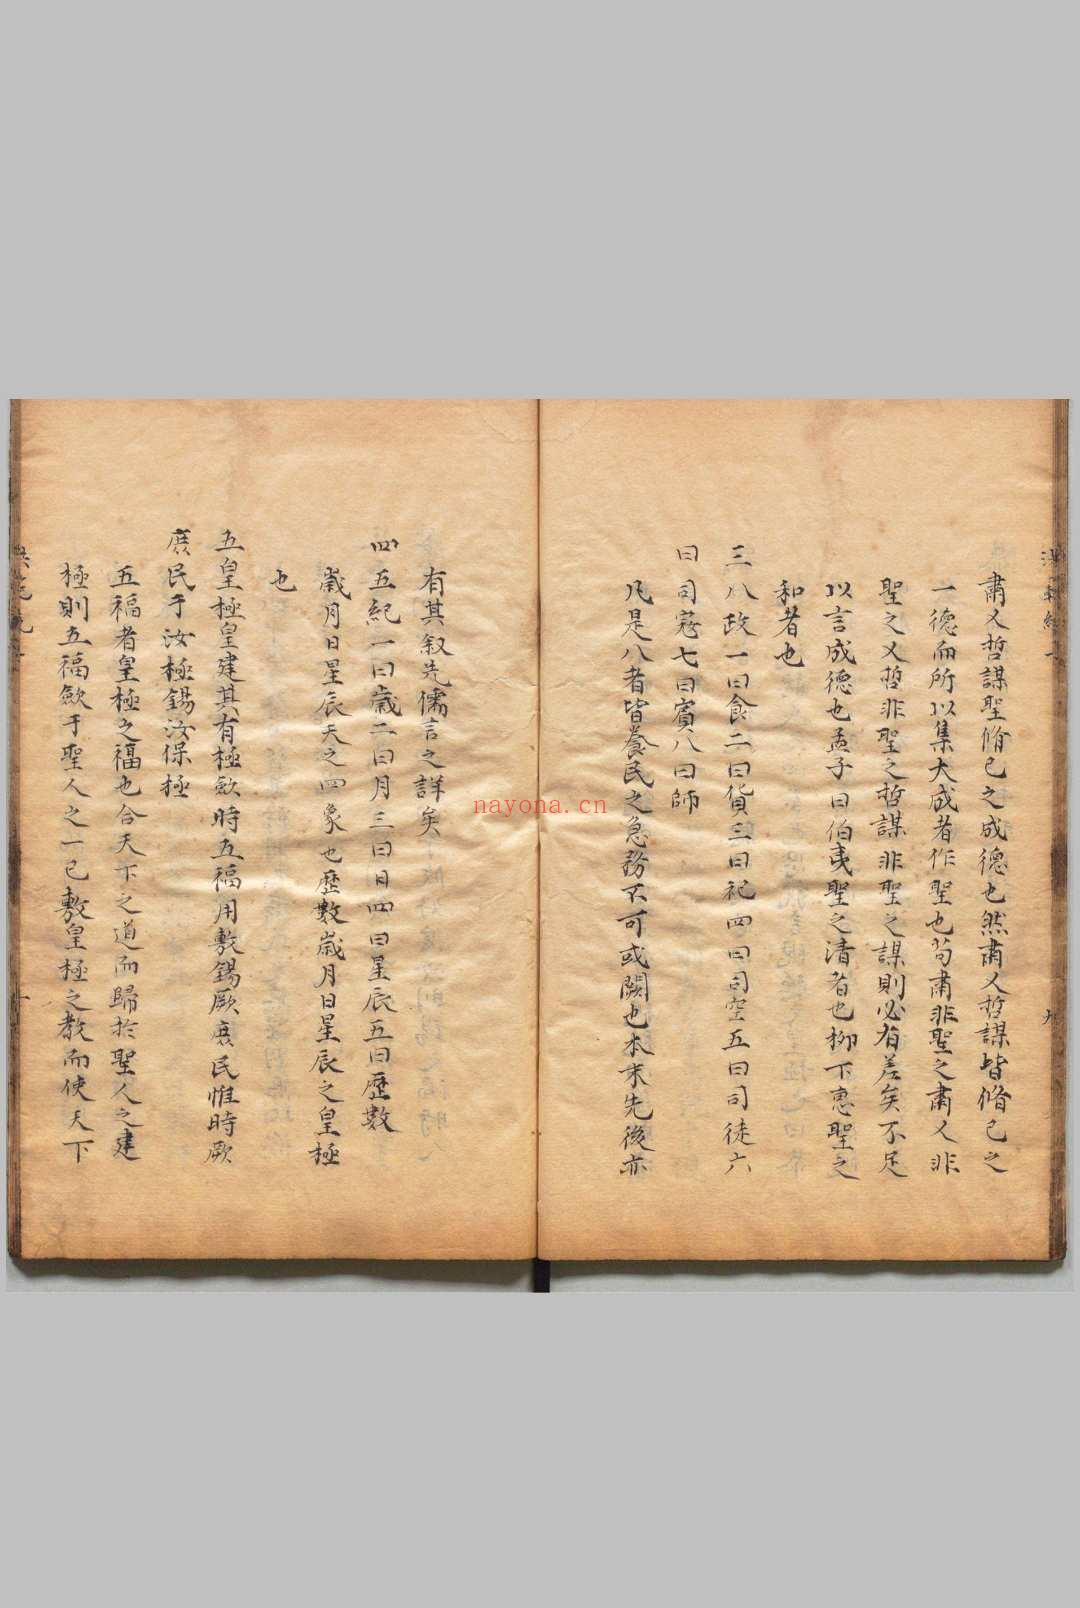 肅乂哲謀聖脩己之成德也然肅乂哲謀皆脩己之
一德而所以集大成者作聖也苟肅非聖之肅乂非
聖之乂哲非聖之哲謀非聖之謀則必有差矣不足
以言成德也孟子曰伯夷聖之清者也柳下惠聖之
和者也
三八政一曰食二曰貨三曰祀四曰司空五曰司徒六
曰司寇七曰賓八曰師
凡是八者皆養民之急務不可或闕也本末先後亦
九
有其叙先儒言之詳矣
四五紀一曰歲二曰月三曰日四曰星辰五曰歷數
歲月日星辰天之四象也歷數歲月日星辰之皇極
也
五皇極皇建其有極歛時五福用敷錫厥庶民惟時厥
庶民于汝極錫汝保極
五福者皇極之福也合天下之道而歸於聖人之建
極則五福歛于聖人之一己敷皇極之教而使天下
nayona.cn